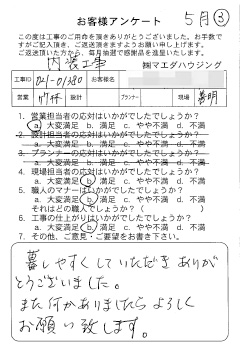 お客様アンケート 5月③
この度は工事のご用命を頂きありがとうございました。お手数で
すがご記入頂き、ご返送頂きますようお願い申し上げます。
ご返送頂いた方から、毎月抽選で感謝品を進呈いたします。
内装工事 ㈱マエダハウジング
工事ID お客様名
営業 竹本 設計 プランナー 現場
1. 営業担当者の対応はいかがでしたでしょうか?
a. 大変満足 b. 満足 c. やや不満 d. 不満
2. 設計担当者の対応はいかがでしたでしょうか?
a. 大変満足 b. 満足 c. やや不満 d. 不満
3. プランナーの対応はいかがでしたでしょうか?
a. 大変満足 b. 満足 c. やや不満 d. 不満
4. 現場担当者の対応はいかがでしたでしょうか?
a. 大変満足 b. 満足 c. やや不満 d. 不満
5. 職人のマナーはいかがでしたでしょうか?
a. 大変満足 b. 満足 c. やや不満 d. 不満
それはどの職人でしょうか? ( )
6. 工事の仕上がりはいかがでしたでしょうか?
a. 大変満足 b. 満足 c. やや不満 d. 不満
7. その他、ご意見・ご要望をお書き下さい。
暮しやすくしていただきありが
とうございました。
また何かありましたらよろしく
お願い致します。